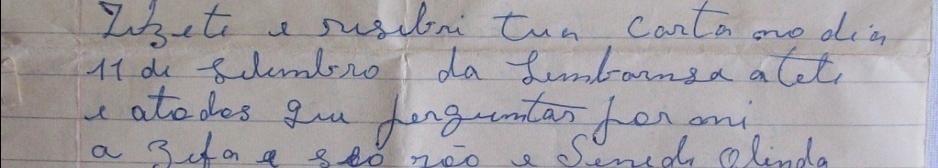 Zizete e risebri tua Carta no dia
11 de Setembro da Lembransa a tete
e atodos que perguntar por mi
a Zefa e seo não e Olinda